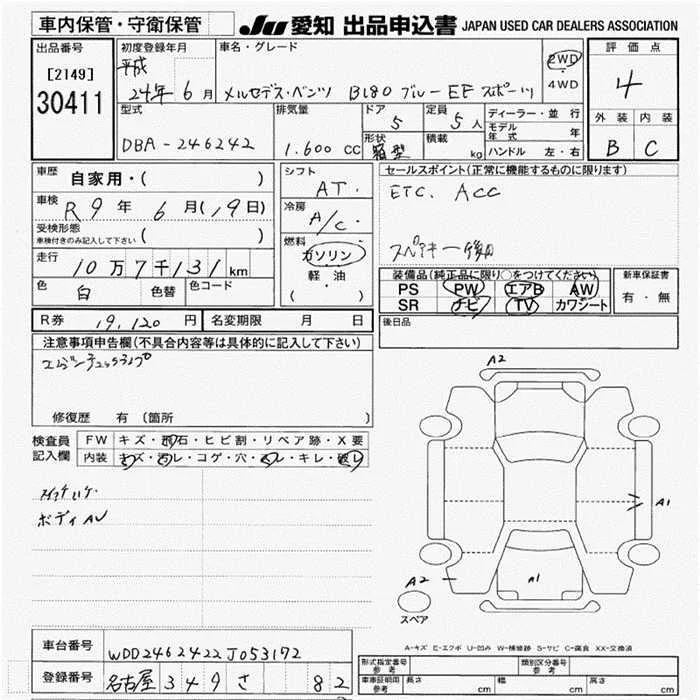 車内保管・守衛保管
JU 愛知 出品申込書 JAPAN USED CAR DEALERS ASSOCIATION
出品番号 初度登録年月 車名・グレード 評価点
[2149] 平成 2WD
30411 24年 6月 メルセデス・ベンツ B180 ブルーEF スポーツ 4WD 4
型式 排気量 ドア 定員 ディーラー・並行 外装 内装
DBA-246242 1.600cc 5 5人 モデル年式 年 B C
形状 積載
箱型 kg ハンドル 左・右
車歴 自家用・( )
シフト AT.
セールスポイント(正常に機能するものに限ります)
車検 R9年 6月(19日)
冷房 A/C.
ETC. ACC
受検形態
車検付きのみ記入して下さい ( )
燃料 ガソリン
軽油
( ・ )
走行 10万7千131km
色 白 色替 色コード
装備品(純正品に限り○をつけてください) 新車保証書
PS PW エアB AW 有・無
SR ナビ TV カワシート
R券 19,120円 名変期限 月 日
後日品
注意事項申告欄(不具合内容等は具体的に記入して下さい)
修復歴 有 (箇所
検査員記入欄
FW キズ・飛石・ヒビ割・リペア跡・X要
内装 キズ・汚レ・コゲ・穴・スレ・キレ・破レ
ボディAU
A2
A1
A2
A1
スペア
A-キズ E-エクボ U-凹み W-補修跡 S-サビ C-腐食 XX-交換済
車台番号 WDD2462422J053172
登録番号 名古屋 349 さ 82
形式指定番号 参考 類別区分番号 参考
車庫証明用 参考 長さ cm 幅 cm 高さ cm